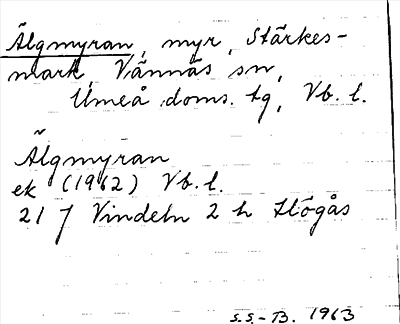 Älgmyran, myr, Stärkes-
mark, Vännäs sn,
Umeå doms. tg, Vb. l.
Älgmyran
ek (1962) Vb. l.
21 J Vindeln 2 h Högås
S.S.-B. 1963